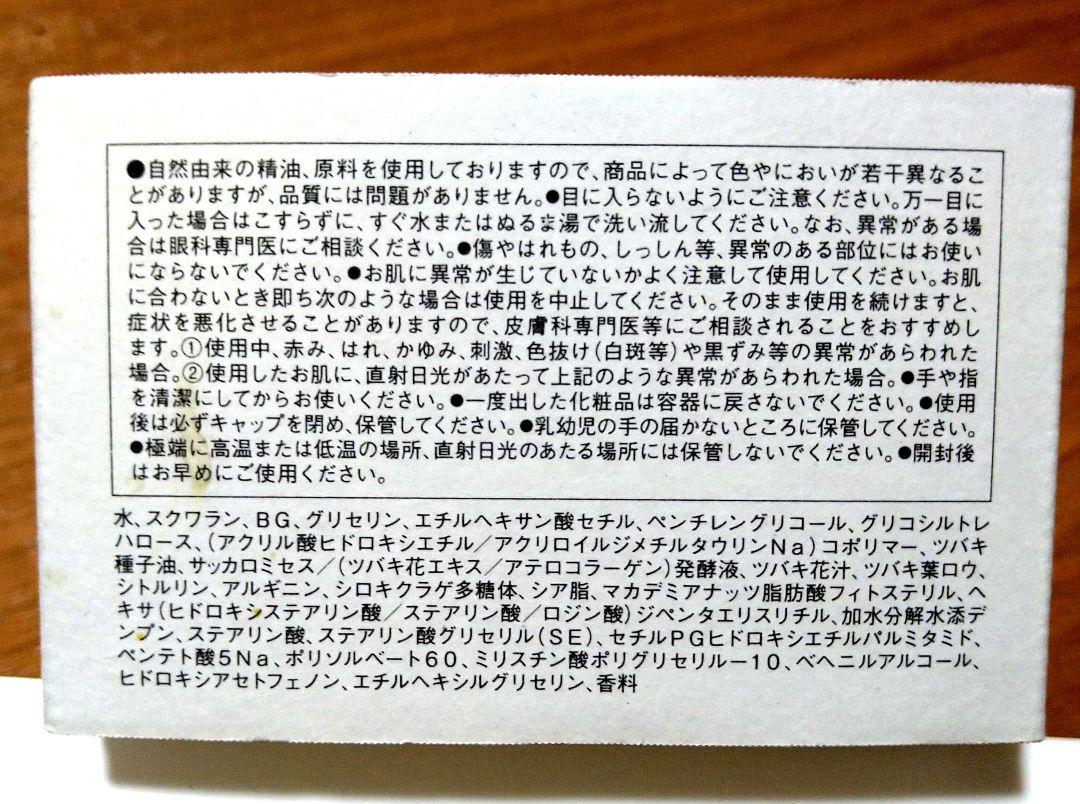 ●自然由来の精油、原料を使用しておりますので、商品によって色やにおいが若干異なるこ
とがありますが、品質には問題がありません。●目に入らないようにご注意ください。万一目に
入った場合はこすらずに、すぐ水またはぬるま湯で洗い流してください。なお、異常がある場
合は眼科専門医にご相談ください。●傷やはれもの、しっしん等、異常のある部位にはお使い
にならないでください。●お肌に異常が生じていないかよく注意して使用してください。お肌
に合わないとき即ち次のような場合は使用を中止してください。そのまま使用を続けますと、
症状を悪化させることがありますので、皮膚科専門医等にご相談されることをおすすめし
ます。①使用中、赤み、はれ、かゆみ、刺激、色抜け(白斑等)や黒ずみ等の異常があらわれた
場合。②使用したお肌に、直射日光があたって上記のような異常があらわれた場合。●手や指
を清潔にしてからお使いください。●一度出した化粧品は容器に戻さないでください。●使用
後は必ずキャップを閉め、保管してください。●乳幼児の手の届かないところに保管してください。
●極端に高温または低温の場所、直射日光のあたる場所には保管しないでください。●開封後
はお早めにご使用ください。
水、スクワラン、BG、グリセリン、エチルヘキサン酸セチル、ペンチレングリコール、グリコシルトレ
ハロース、(アクリル酸ヒドロキシエチル/アクリロイルジメチルタウリンNa)コポリマー、ツバキ
種子油、サッカロミセス/(ツバキ花エキス/アテロコラーゲン)発酵液、ツバキ花汁、ツバキ葉ロウ、
シトルリン、アルギニン、シロキクラゲ多糖体、シア脂、マカデミアナッツ脂肪酸フィトステリル、ヘ
キサ(ヒドロキシステアリン酸/ステアリン酸/ロジン酸)ジペンタエリスリチル、加水分解水添デ
ンプン、ステアリン酸、ステアリン酸グリセリル(SE)、セチルPGヒドロキシエチルパルミタミド、
ペンテト酸5Na、ポリソルベート60、ミリスチン酸ポリグリセリル－10、ベヘニルアルコール、
ヒドロキシアセトフェノン、エチルヘキシルグリセリン、香料